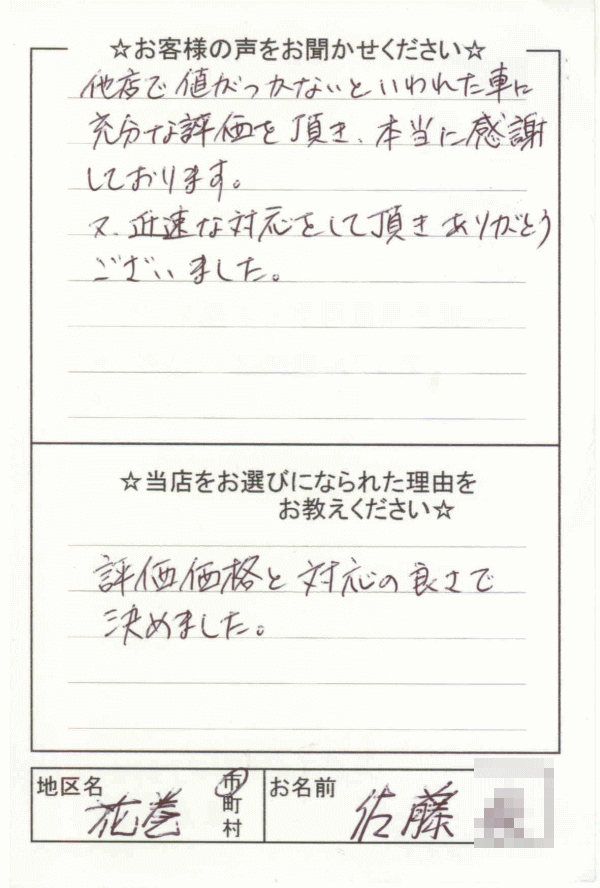 ☆お客様の声をお聞かせください☆
他店で値がつかないといわれた車に
充分な評価を頂き、本当に感謝
しております。
又、迅速な対応をして頂きありがとう
ございました。
☆当店をお選びになられた理由を
お教えください☆
評価価格と対応の良さで
決めました。
地区名
花巻
市
町
村
お名前
佐藤